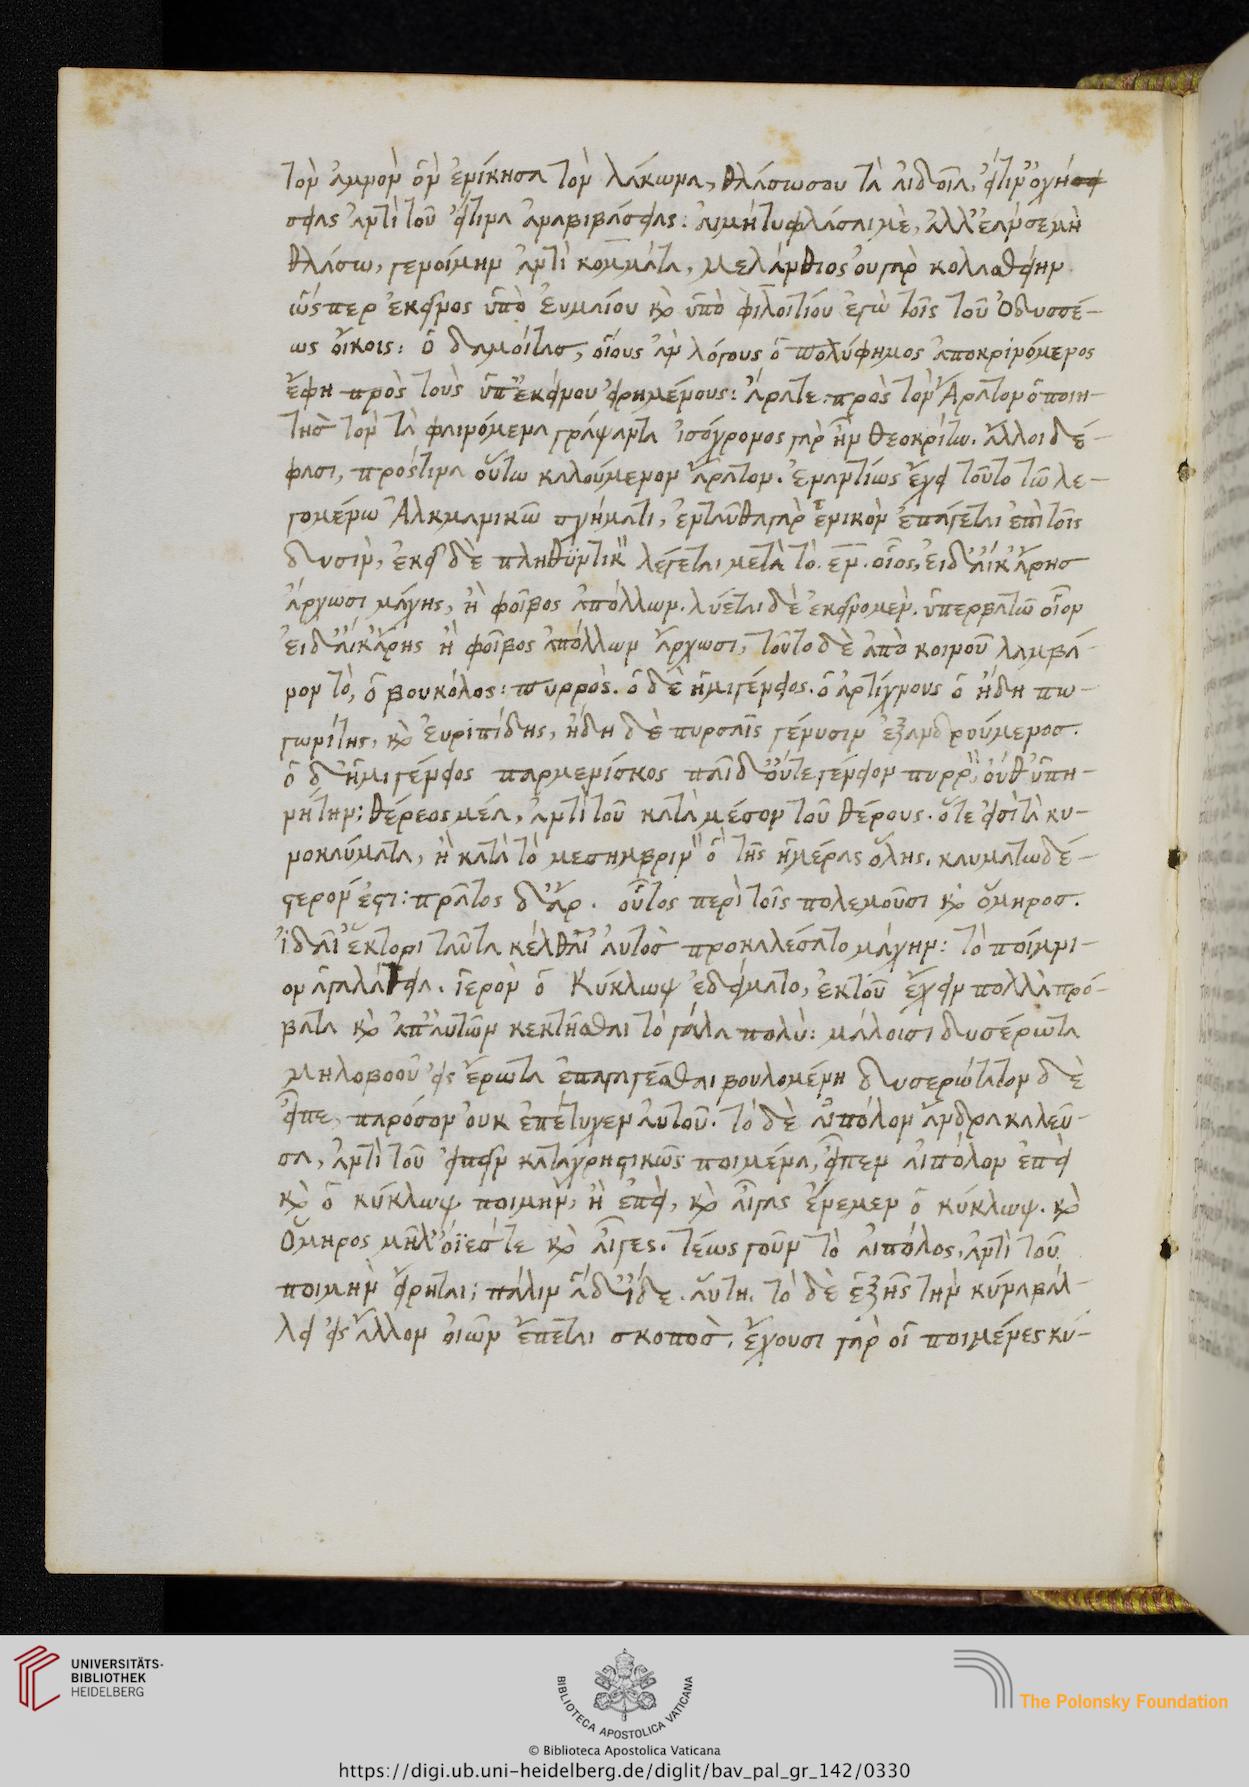 τὸν ἀμνὸν ὃν ἐνίκησα τὸν λάκωνα, θλάσω σου τὰ αἰδοῖα, εἴτιν᾽ ὀχήσει
σειας ἀντὶ τοῦ εἴτινα ἀναβιβάσειας: αἰμή τυ φλάσαιμὲ, ἀλλ᾽ ἐὰν σε μὴ
θλάσω, γενοίμην ἀντὶ κομμάτα, μελάνθιος οὐ γὰρ κολλαθείην
ὥσπερ ἐκεῖνος ὑπὸ εὐμαίου καὶ ὑπὸ φιλοιτίου ἐγὼ τοῖς τοῦ Ὀδυσσέ-
ως οἴκοις: ὁ δαμοίτασ, οἵους ἂν λόγους ὁ πολύφημος ἀποκρινόμενος
ἔφη πρὸς τοὺς ὑπ᾽ ἐκείνου εἰρημένους: Ἄρατε πρὸς τὸν Ἄρατον ὁ ποιη-
τὴσ τὸν τὰ φαινόμενα γράψαντα ἰσόχρονος γὰρ ἦν θεοκρίτω. ἄλλοι δέ-
φασι, πρόστινα οὕτω καλούμενον ἄρατον. ἐναντίως ἔχει τοῦτο τῶ λε-
γομένω Ἀλκμανικῶ σχήματι, ἐνταῦθα γὰρ ἑνικὸν ἐπάγεται ἐπὶ τοῖς
δυσὶν, ἐκεῖ δὲ πληθϋντικ λέγεται μετὰ τὸ ἑν. οἷος, εἰ δ᾽ αἴκ᾽ ἄρησ
ἄρχωσι μάχης, ἢ φοῖβος ἀπόλλων. λύεται δὲ ἐκεῖνο μὲν. ὑπερβατῶ οἷον
εἰ δ᾽ αἴκ᾽ ἄρης ἢ φοῖβος ἀπόλλων ἄρχωσι, τοῦτο δὲ ἀπὸ κοινοῦ λαμβά-
νον τὸ, ὁ βουκόλος: πυρρὸς. ὁ δὲ ἡμιγένειος. ὁ ἀρτίχνους ὁ ἤδη πω-
γωνίτης, καὶ εὐριπίδης, ἤδη δὲ πυρσαῖς γένυσιν ἐξανδρούμενοσ.
ὁ δ᾽ ἡμιγένειος παρμενίσκος παῖδ᾽ οὔτε γένειον πυρρ οὐθ᾽ ὑπη-
νήτην: θέρεος μέσα, ἀντὶ τοῦ κατὰ μέσον τοῦ θέρους. ὅτε εἰσὶ τὰ κυ-
νοκαύματα, ἢ κατὰ τὸ μεσημβριν ὃ τῆς ἡμέρας ὅλης. καυματωδέ-
στερον ἐστι: πρᾶτος δ᾽ ἄρ. οὗτος περὶ τοῖς πολεμοῦσι καὶ ὅμηροσ.
ἰδαῖ ἕκτορι ταῦτα κέλθαἰ αὐτοσ προκαλέσατο μάχην: τὸ ποίμνι-
ον ἁγαλάτεια. ἱερὸν ὁ Κύκλωψ ἐδείματο, ἐκ τοῦ ἔχειν πολλὰ πρό-
βατα καὶ ἀπ᾽ αὐτῶν κεκτῆσθαι τὸ γάλα πολὺ: μάλοισι δυσέρωτα
μηλοβοοῦ εἰς ἔρωτα ἐπαγαγέσθαι βουλομένη δυσερώτατον δὲ
εἶπε, παρόσον οὐκ ἐπέτυχεν αὐτοῦ. τὸ δὲ αἰπόλον ἄνδρα καλεῦ-
σα, ἀντὶ τοῦ εἰπεῖν καταχρηστικῶς ποιμένα, εἶπεν αἰπόλον ἐπεὶ
καὶ ὁ κύκλωψ ποιμὴν, ἢ ἐπεὶ, καὶ αἶγας ἔνεμεν ὁ κύκλωψ. καὶ
Ὅμηρος μῆλ᾽ ὄϊές τε καὶ αἶγες. τέως γοῦν τὸ αἰπόλος, ἀντὶ τοῦ
ποιμὴν εἴρηται: πάλιν ἅδ᾽ ἴδε. αὕτη. τὸ δὲ ἑξῆς τὴν κύνα βάλ-
λει εἰς ἄλλον οἰῶν ἕπεται σκοποσ. ἔχουσι γὰρ οἱ ποιμένες κύ-
UNIVERSITÄTS-
BIBLIOTHEK
HEIDELBERG
BIBLIOTECA APOSTOLICA VATICANA
The Polonsky Foundation
© Biblioteca Apostolica Vaticana
https://digi.ub.uni-heidelberg.de/diglit/bav_pal_gr_142/0330